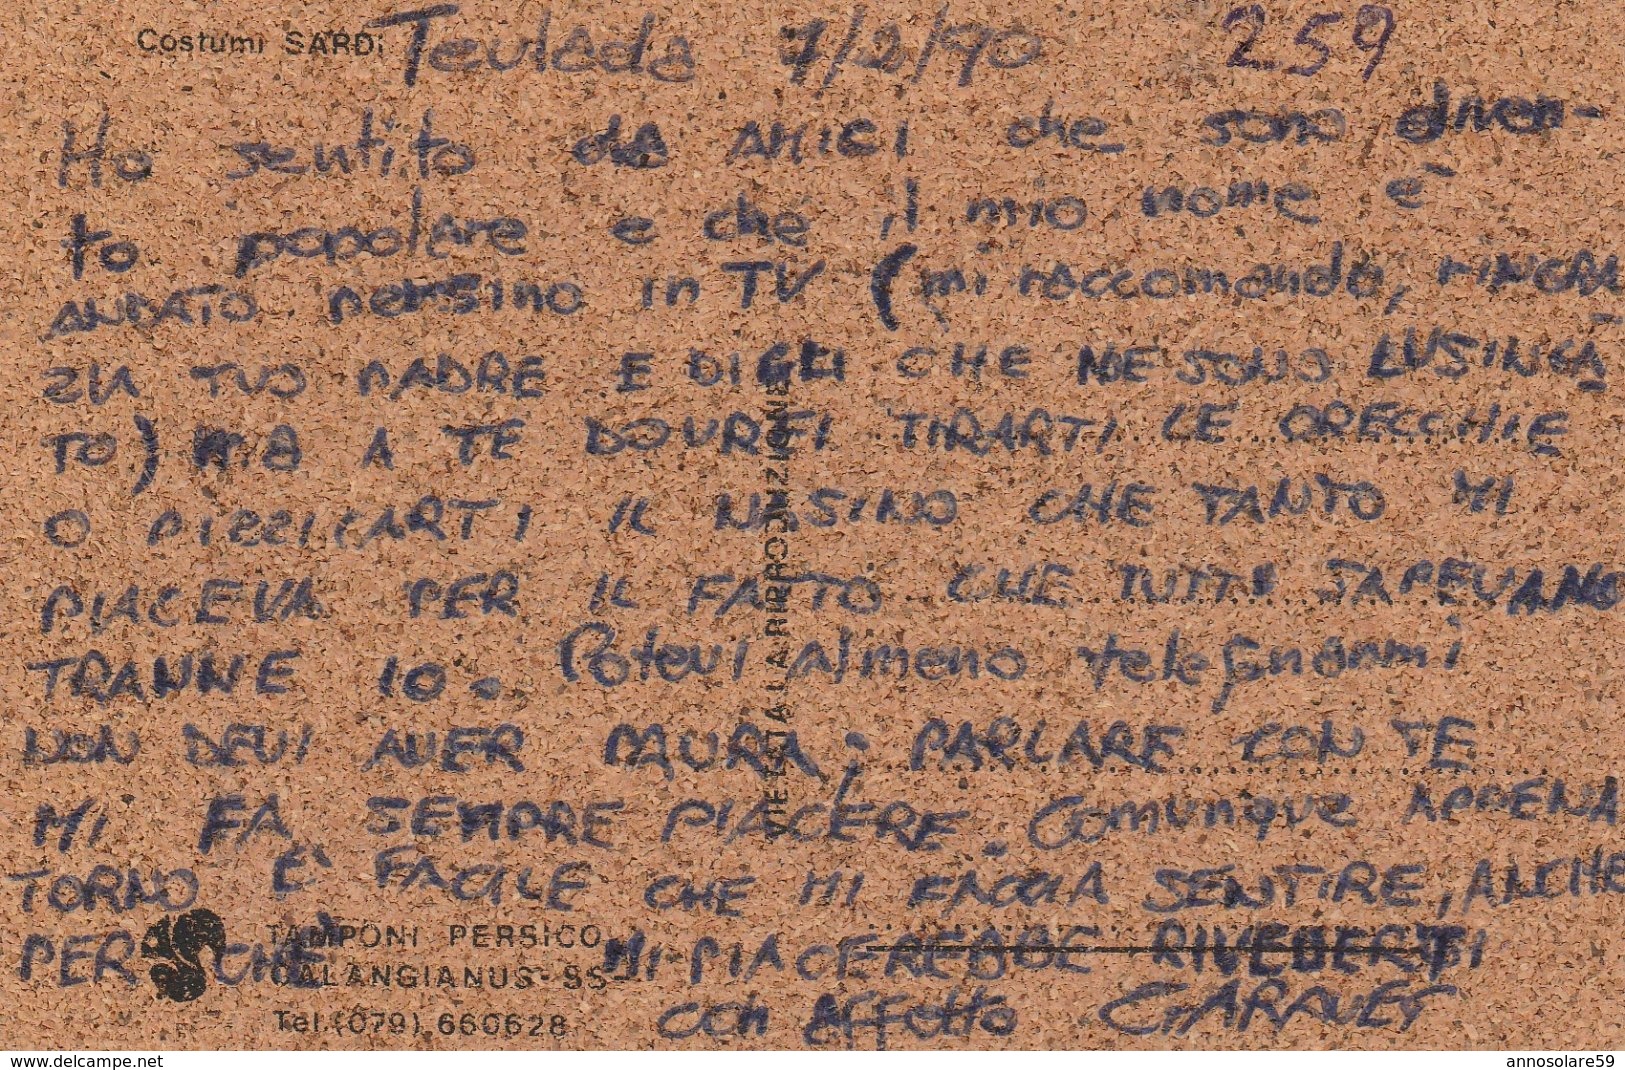 Costumi SARDi Teulada 1/2/90 259
Ho sentito da AMICI che sono diven-
to popolare e che il mio nome è
ANDATO persino in TV (mi raccomando, RINGRA
ZIA TUO PADRE E DIGLI CHE ME SONO LUSINGA
TO) MA A TE DOVREI TIRARTI LE ORECCHIE
O PIZZICARTI IL NASINO CHE TANTO MI
PIACEVA PER IL FATTO CHE TUTTI SAPEVANO
TRANNE IO. Potevi almeno telefonarmi
NON DEVI AVER PAURA; PARLARE CON TE
MI FA SEMPRE PIACERE. Comunque APPENA
TORNO È FACILE CHE MI FACCIA SENTIRE, ANCHE
PERCHÈ MI PIACEREBBE RIVEDERTI
con AFFetto
VIETATA LA RIPRODUZIONE
TAMPONI PERSICO
CALANGIANUS-SS-
Tel.(079) 660628
www.delcampe.net
annosolare59